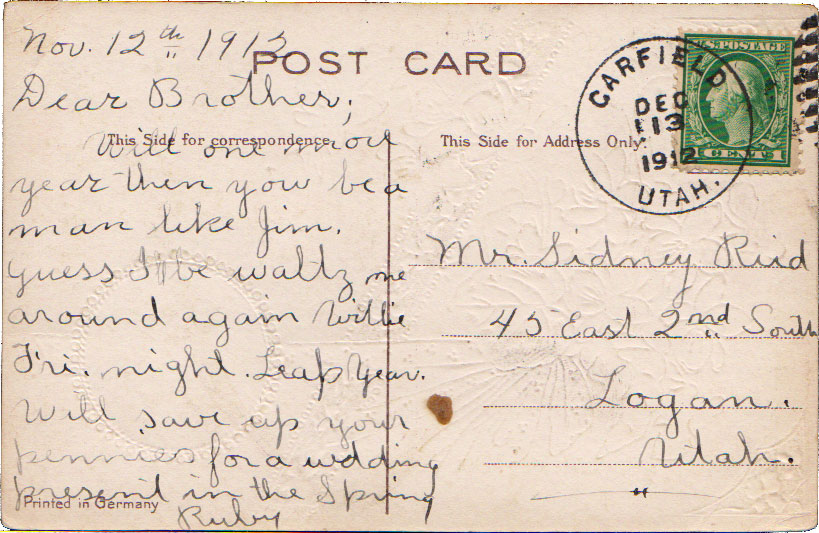 Nov. 12th 1912
POST CARD
Dear Brother;
This Side for correspondence.
Will one more
year then you be a
man like Jim.
Guess I'll be waltz me
around again Willie
Fri. night. Leap Year.
Will save up your
pennies for a wedding
present in the Spring
Ruby
Printed in Germany
This Side for Address Only.
GARFIELD
DEC
13
1912
UTAH.
U.S. POSTAGE
Mr. Sidney Reid
45 East 2nd South
Logan.
Utah.